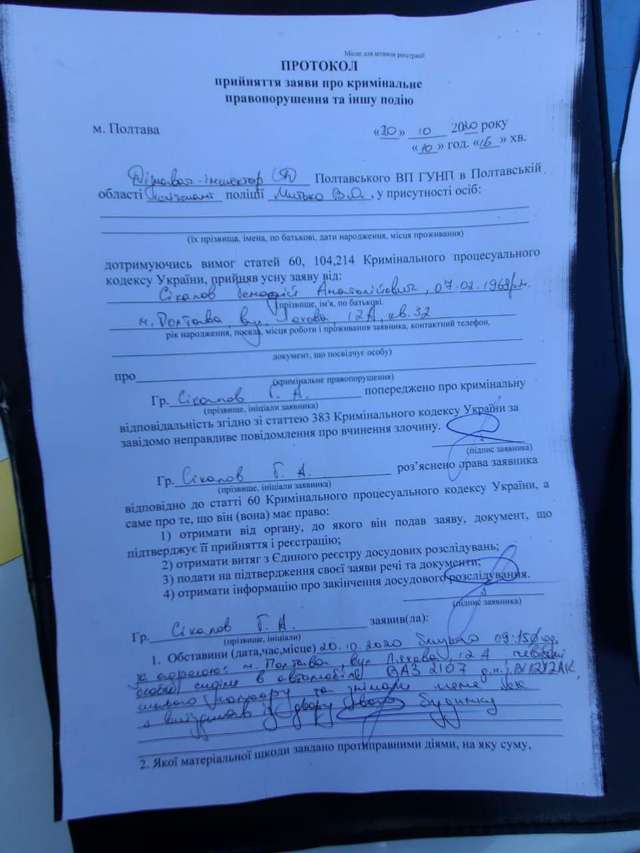 Місце для штампа реєстрації
ПРОТОКОЛ
прийняття заяви про кримінальне
правопорушення та іншу подію
м. Полтава
«20» 10 2020 року
«10» год. «16» хв.
Дізнавач-інспектор Полтавського ВП ГУНП в Полтавській
області поліції Митько В.О., у присутності осіб:
(їх прізвища, імена, по батькові, дати народження, місця проживання)
дотримуючись вимог статей 60, 104,214 Кримінального процесуального
кодексу України, прийняв усну заяву від:
Сікалов Генадій Анатолійович, 07.02.1968р.н.
прізвище, ім'я, по батькові.
м. Полтава, вул. 12А, кв.32
рік народження, посада, місця роботи і проживання заявника, контактний телефон,
документ, що посвідчує особу)
про
(кримінальне правопорушення)
Гр. Сікалов Г. А. попереджено про кримінальну
(прізвище, ініціали заявника)
відповідальність згідно зі статтею 383 Кримінального кодексу України за
завідомо неправдиве повідомлення про вчинення злочину.
(підпис заявника)
Гр. Сікалов Г. А. роз'яснено права заявника
(прізвище, ініціали заявника)
відповідно до статті 60 Кримінального процесуального кодексу України, а
саме про те, що він (вона) має право:
1) отримати від органу, до якого він подав заяву, документ, що
підтверджує її прийняття і реєстрацію;
2) отримати витяг з Єдиного реєстру досудових розслідувань;
3) подати на підтвердження своєї заяви речі та документи;
4) отримати інформацію про закінчення досудового розслідування.
(підпис заявника)
Гр. Сікалов Г. А. заявив(ла):
(прізвище, ініціали)
1. Обставини (дата,час,місце) 20.10.2020 близько 09:15 год.
за адресою: м. Полтава, вул. 12А невідомі
особи сиділи в автомобілі ВАЗ 2107 д.н.
та знімали мене як
я виїзджав із двору свого будинку
2. Якої матеріальної шкоди завдано протиправними діями, на яку суму,